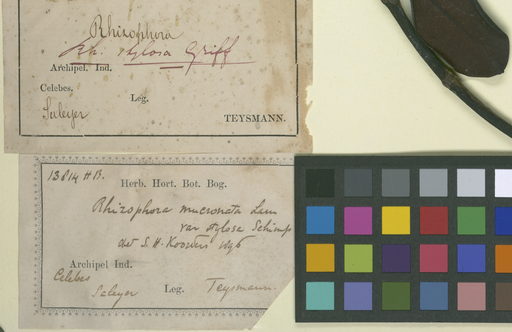 Rhizophora
Rh. stylosa Griff
Archipel. Ind.
Celebes,
Saleyer
Leg.
TEYSMANN.
13814 H.B.
Herb. Hort. Bot. Bog.
Rhizophora mucronata Lam
var stylosa Schimp
det S. H. Koorders 1896
Archipel Ind.
Celebes
Saleyer Leg. Teysmann.